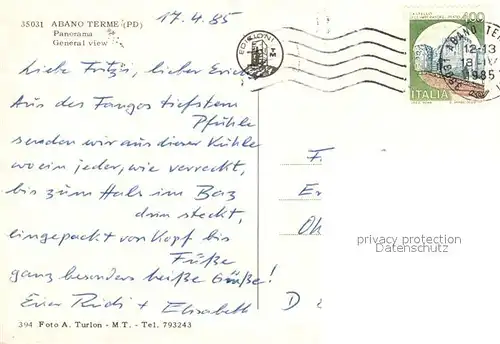 35031 ABANO TERME (PD)
Panorama
General view
17.4.85
EDIZIONI
A.T.
M.
400
ABANO TERME
12-13
18-IV
1985
ITALIA
Liebe Fritzi, lieber Erich
Aus des Fangos tiefstem
Pfühle
senden wir aus dieser Kühle
wo ein jeder, wie verreckt,
bis zum Hals im Baz
drin steckt,
eingepackt von Kopf bis
Füße
ganz besonders heiße Grüße!
Eure Rudi + Elisabeth
F
Er
Ok
D
privacy protection
samyang.com
394 Foto A. Turlon - M.T. - Tel. 793243